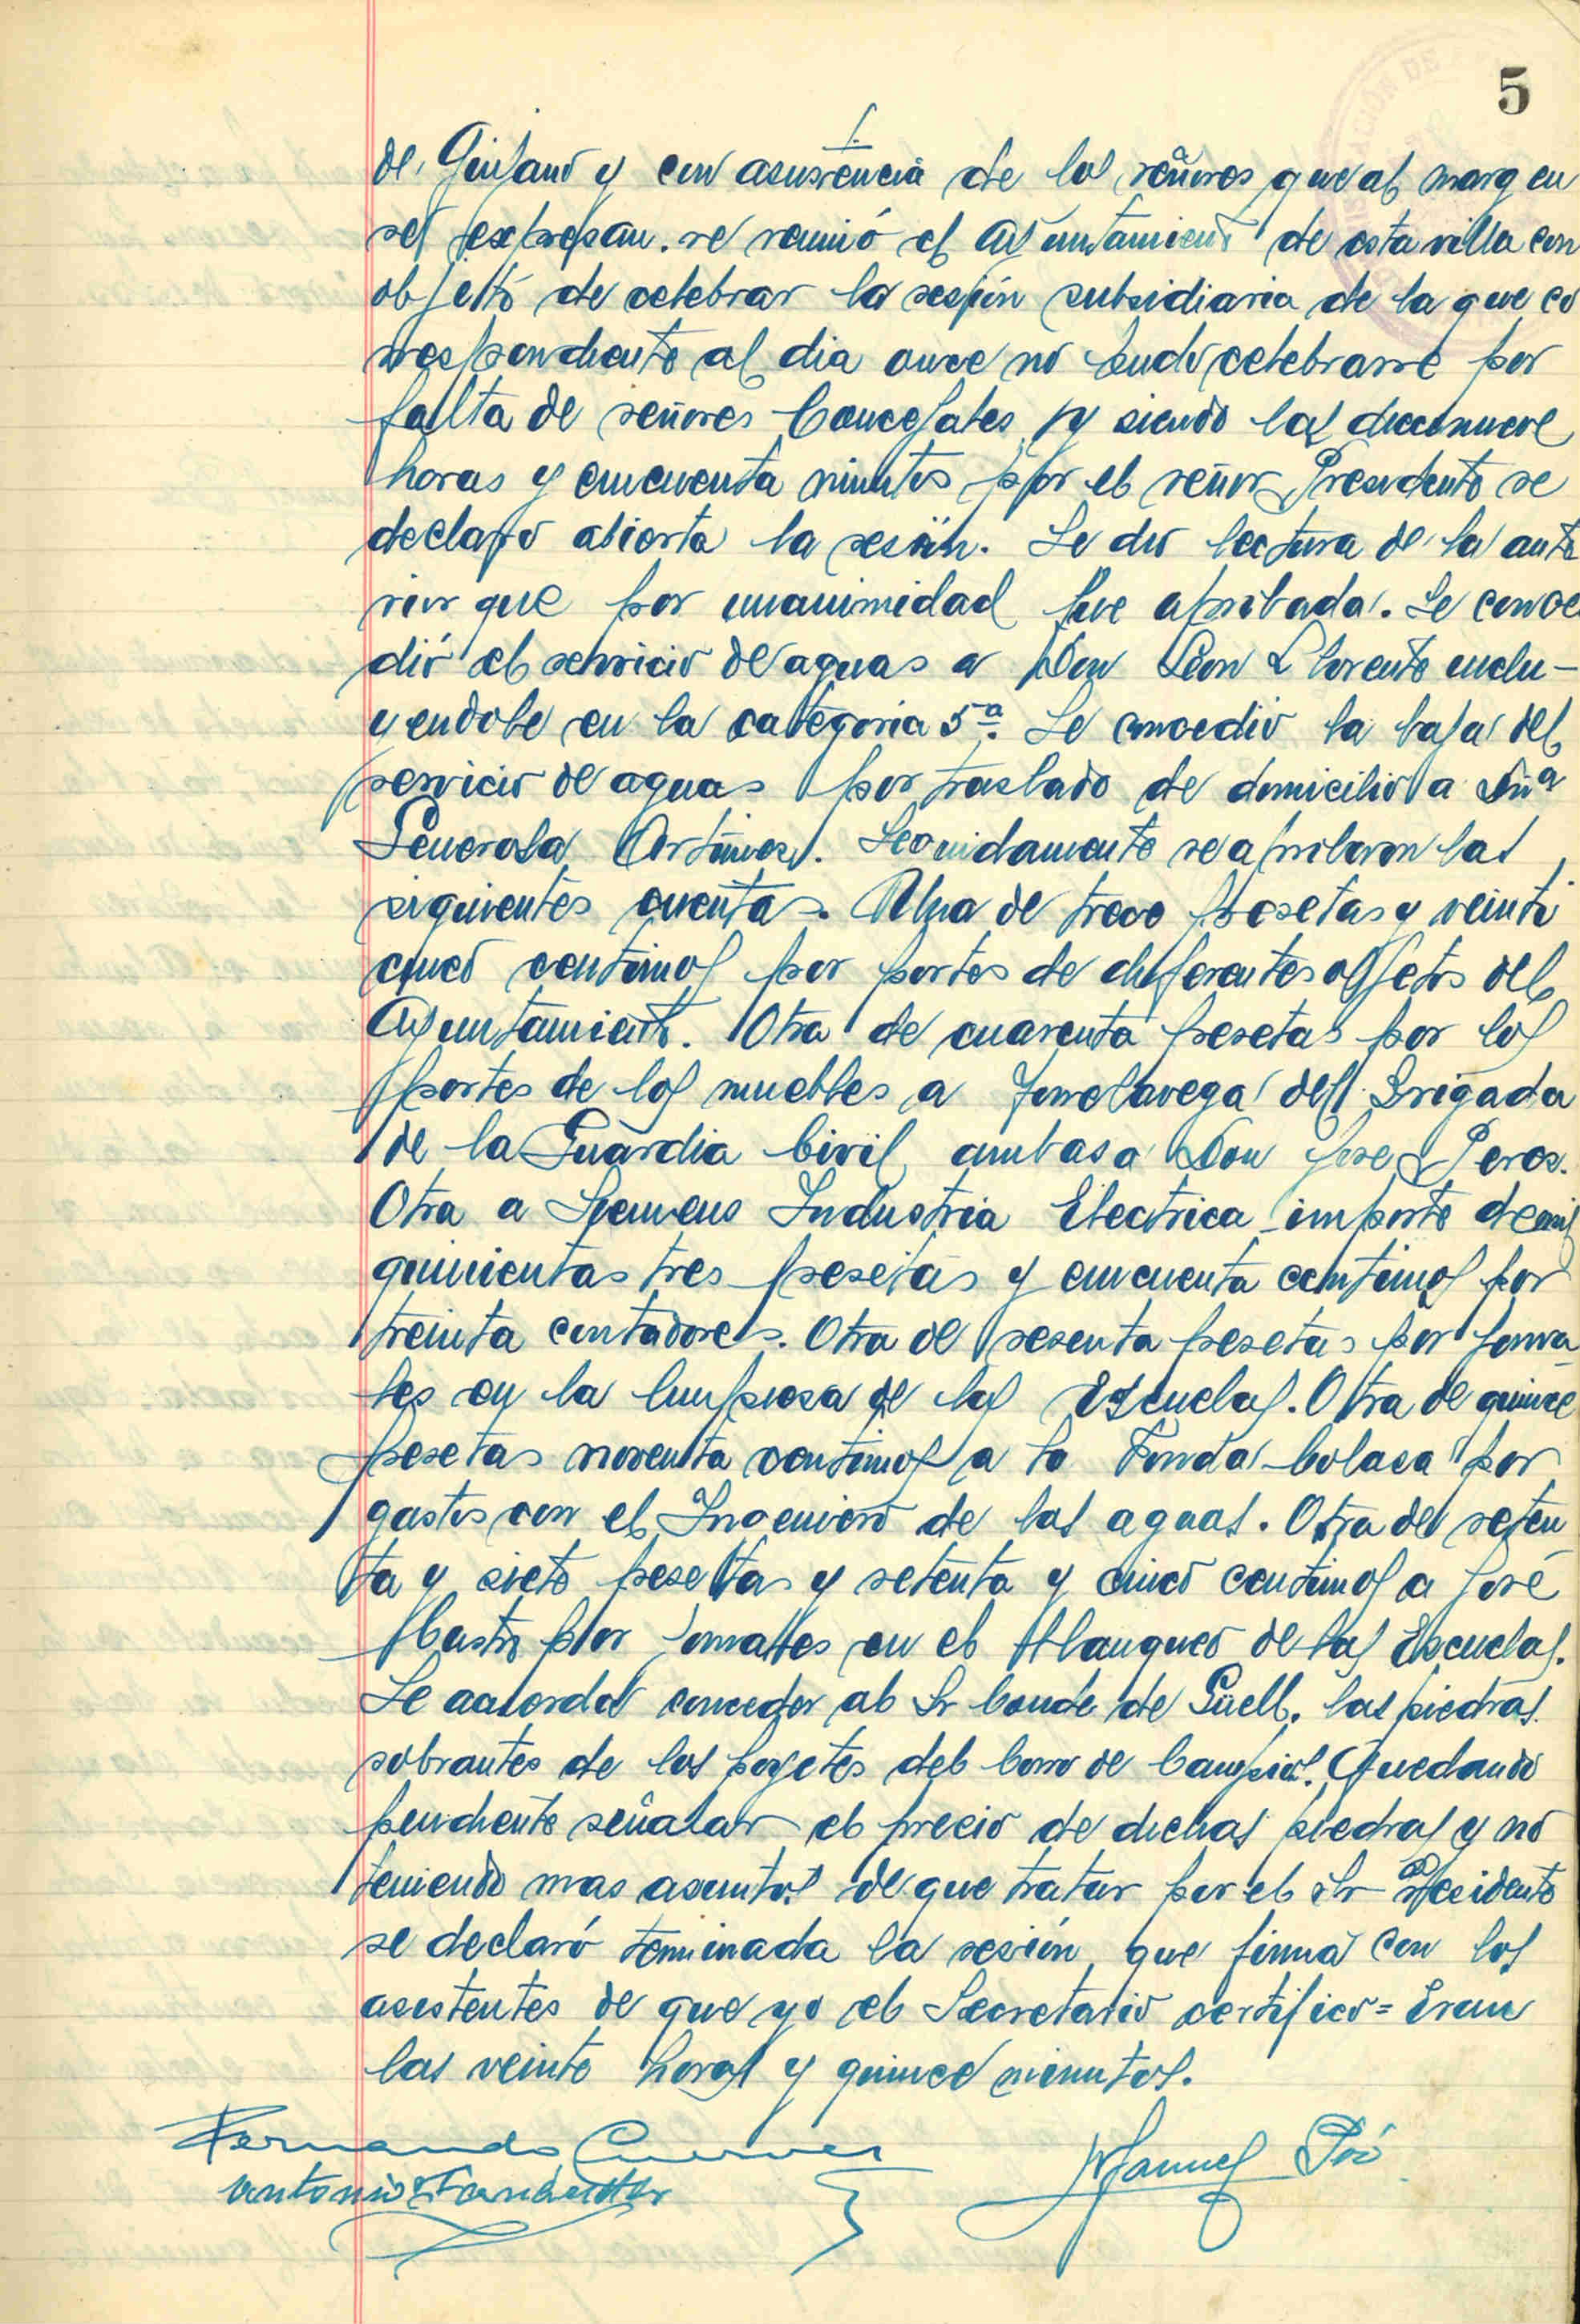 5
de Guijano y con asistencia de los señores que al margen
se expresan. se reunió el Ayuntamiento de esta villa con
objeto de celebrar la sesión subsidiaria de la que co
rrespondiente al dia once no pudo celebrarse por
falta de señores Concejales y siendo las diecinueve
horas y cincuenta minutos por el señor Presidente se
declaro abierta la sesión. Se dio lectura de la ante
rior que por unanimidad fue aprobada. Se conce
dió el servicio de aguas a Don Leon Llorente inclu-
yendole en la categoria 5ª. Se concedio la baja del
servicio de aguas por traslado de domicilio a Dñª
Generosa. Seguidamente se aprobaron las
siguientes cuentas. Una de trece pesetas y veinti
cinco centimos por portes de diferentes objetos del
Ayuntamiento. Otra de cuarenta pesetas por los
portes de los muebles a Torrelavega del Brigada
de la Guardia Civil ambas a Don Jose Perez.
Otra a Siemens Industria Electrica importe de mil
quinientas tres pesetas y cincuenta centimos por
treinta contadores. Otra de sesenta pesetas por jorna
les en la limpieza de las Escuelas. Otra de quince
pesetas noventa centimos a la Fonda Colasa por
gastos con el Ingeniero de las aguas. Otra de seten
ta y siete pesetas y setenta y cinco centimos a José
Castro por jornales en el blanqueo de las Escuelas.
Se acordo conceder al Sr Conde de Güell. las piedras
sobrantes de los del Corro de Campios. Quedando
pendiente señalar el precio de dichas piedras y no
teniendo mas asuntos de que tratar por el Sr Presidente
se declaró terminada la sesión que firma con los
asistentes de que yo el Secretario certifico = Eran
las veinte horas y quince minutos.
Fernando Manuel
Antonio